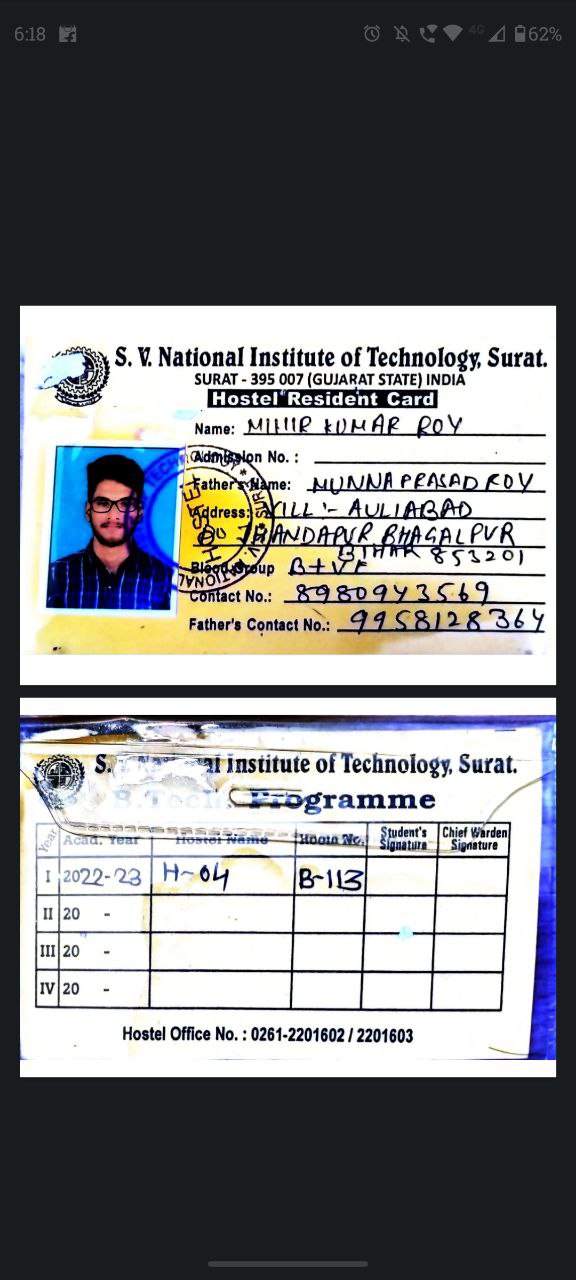 6:18
4G
62%
S. V. National Institute of Technology, Surat.
SURAT - 395 007 (GUJARAT STATE) INDIA
Hostel Resident Card
Name: MIHIR KUMAR ROY
Admission No. :
Father's Name: MUNNA PRASAD ROY
Address: VILL :- AULIABAD
JHANDAPUR BHAGALPUR
BIHAR 853201
Blood Group B+VE
Contact No.: 8980943569
Father's Contact No.: 9958128364
HOSTEL
S. National Institute of Technology, Surat.
B.Tech. Programme
Year Acad. Year Hostel Name Room No. Student's Signature Chief Warden Signature
I 2022-23 H-04 B-113
II 20 -
III 20 -
IV 20 -
Hostel Office No. : 0261-2201602 / 2201603